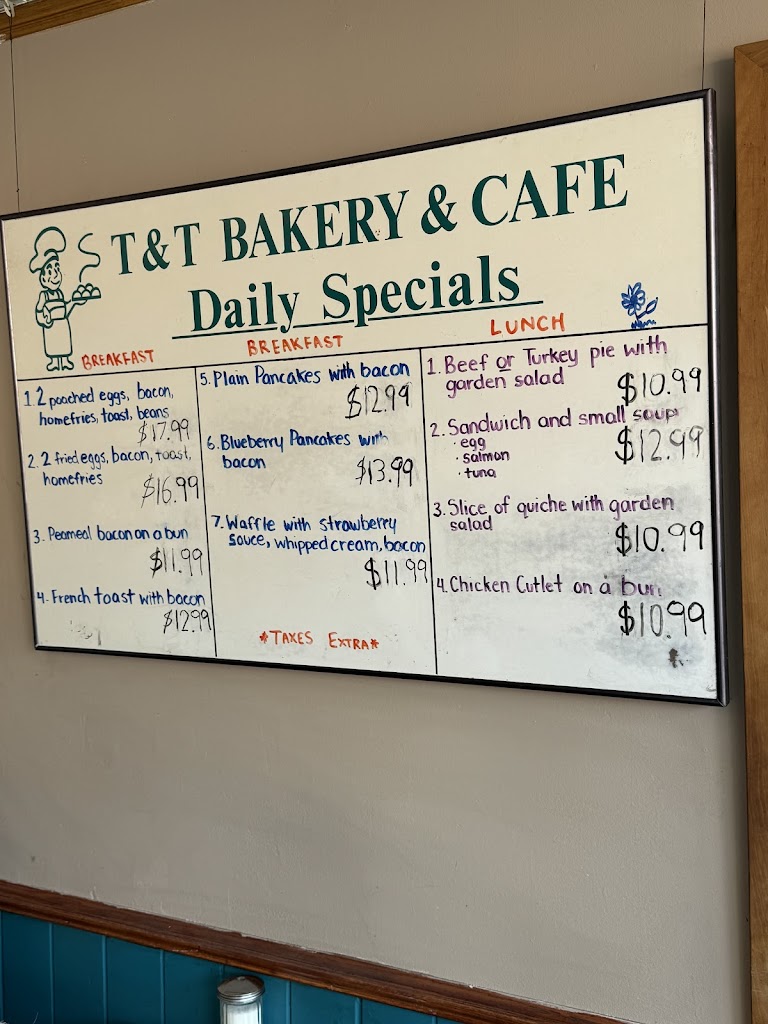 T&T BAKERY & CAFE
Daily Specials
BREAKFAST
1. 2 poached eggs, bacon,
homefries, toast, beans
$17.99
2. 2 fried eggs, bacon, toast,
homefries
$16.99
3. Peameal bacon on a bun
$11.99
4. French toast with bacon
$12.99
BREAKFAST
5. Plain Pancakes with bacon
$12.99
6. Blueberry Pancakes with
bacon
$13.99
7. Waffle with strawberry
sauce, whipped cream, bacon
$11.99
*TAXES EXTRA*
LUNCH
1. Beef or Turkey pie with
garden salad
$10.99
2. Sandwich and small soup
· egg
· salmon
· tuna
$12.99
3. Slice of quiche with garden
salad
$10.99
4. Chicken Cutlet on a bun
$10.99